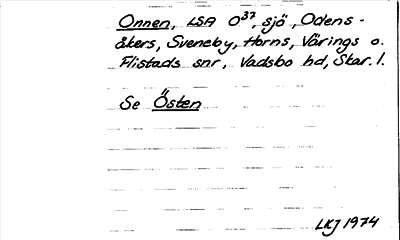 Onnen, LSA O³⁷, sjö, Odens-
åkers, Sveneby, Horns, Värings o.
Flistads snr, Vadsbo hd, Skar. l.
Se Östen
LKJ 1974